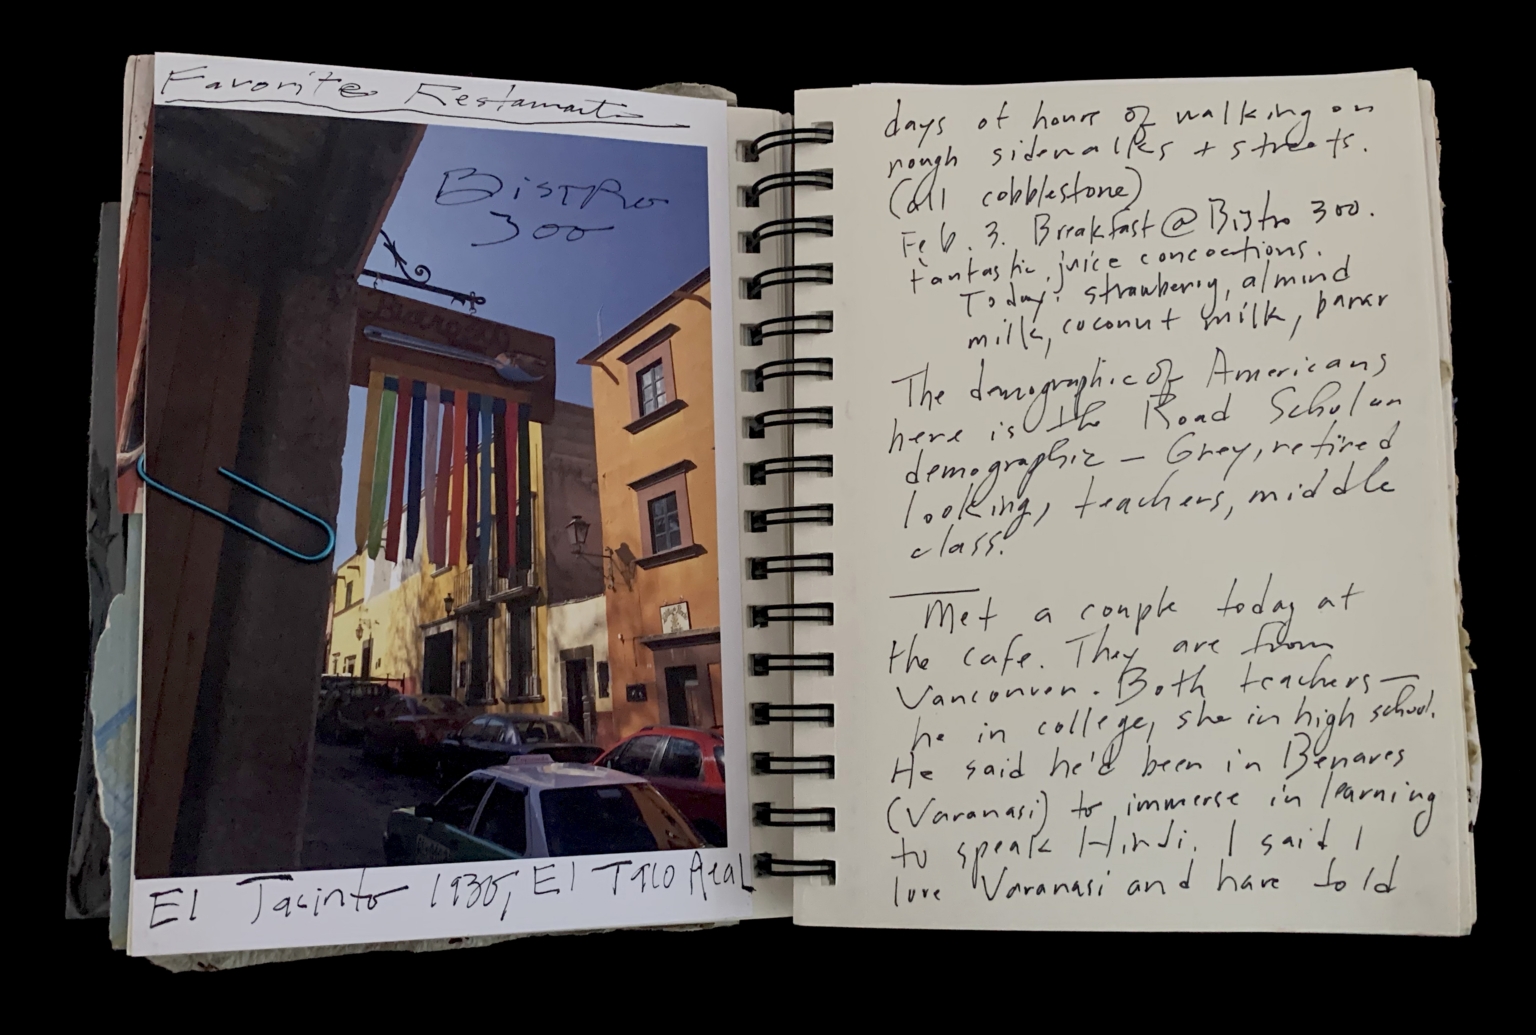 Favorite Restaurants
BISTRO
300
Bistro 300
El Jacinto 1930, El Taco Real
days of hours of walking on
rough sidewalks + streets.
(all cobblestone)
Feb. 3. Breakfast @ Bistro 300.
Fantastic juice concoctions.
Today: strawberry, almind
milk, coconut milk,
The demographic of Americans
here is the Road Scholar
demographic – Grey, retired
looking, teachers, middle
class.
Met a couple today at
the cafe. They are from
Vancouver. Both teachers—
he in college, she in high school.
He said he'd been in Benares
(Varanasi) to immerse in learning
to speak Hindi. I said I
love Varanasi and have told